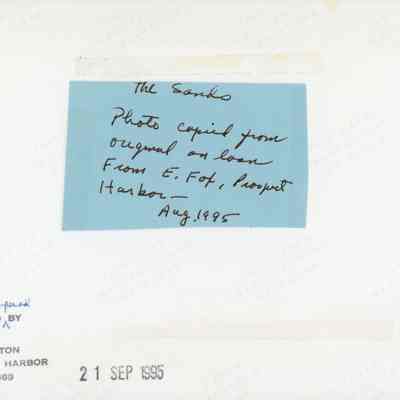 The Sands
Photo copied from
original on loan
From E. Fox, Prospect
Harbor—
Aug. 1995
BY
TON
HARBOR
21 SEP 1995